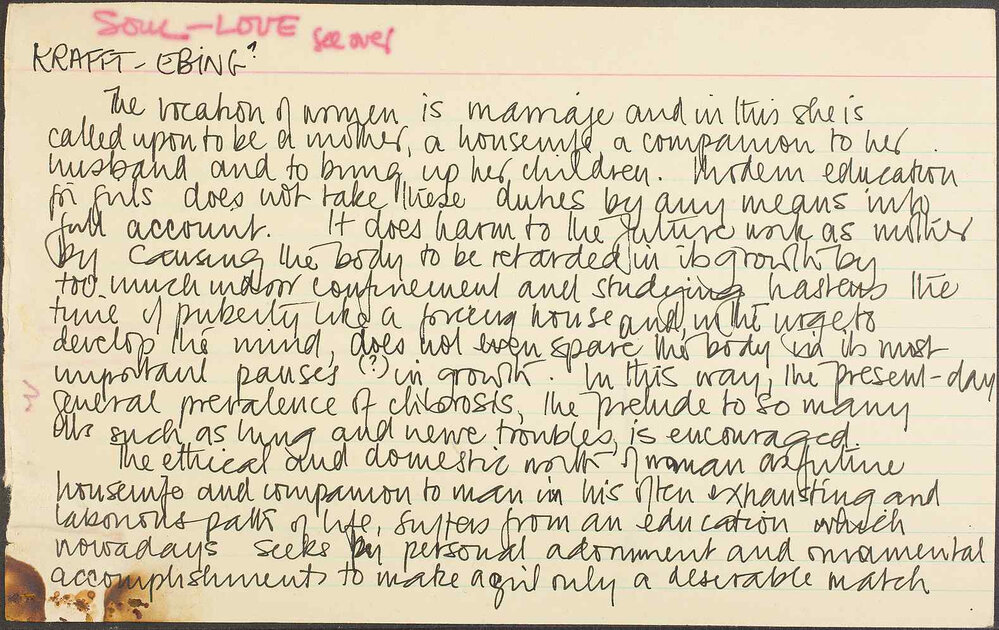 SOUL – LOVE see over
KRAFFT – EBING?
The vocation of women is marriage and in this she is
called upon to be a mother, a housewife, a companion to her
husband and to bring up her children. Modern education
for girls does not take these duties by any means into
full account. It does harm to the future work as mother
by causing the body to be retarded in its growth by
too much indoor confinement and studying hastens the
time of puberty like a forcing house and, in the urge to
develop the mind, does not even spare the body in its most
important pauses (?) in growth. In this way, the present-day
general prevalence of chlorosis, the prelude to so many
ills such as lung and nerve troubles, is encouraged.
The ethical and domestic worth of woman as future
housewife and companion to man in his often exhausting and
laborious path of life, suffers from an education which
nowadays seeks by personal adornment and ornamental
accomplishments to make a girl only a desirable match